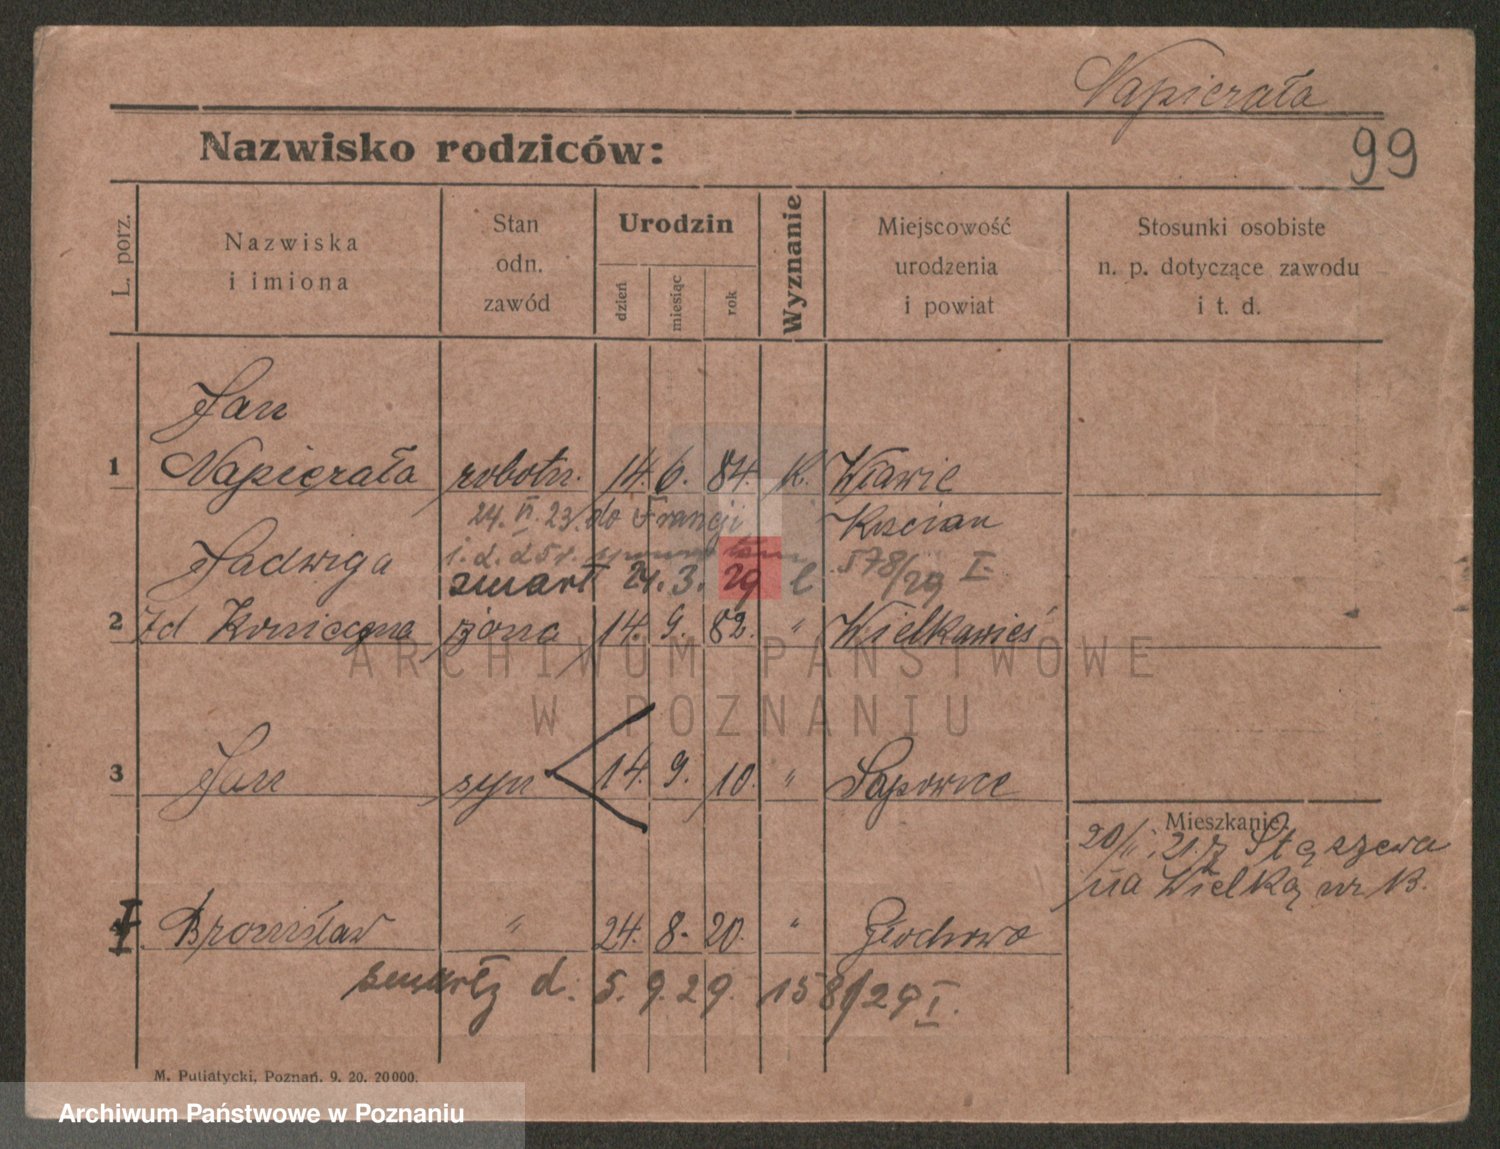 Napierała
99
Nazwisko rodziców:
L. porz.
Nazwiska i imiona
Stan odn. zawód
Urodzin
dzień miesiąc rok
Wyznanie
Miejscowość urodzenia i powiat
Stosunki osobiste n. p. dotyczące zawodu i t. d.
Jan
1 Napierała robotn. 14. 6. 84. K. Wławie
24. VI. 23. do Francji Kościan
Jadwiga 1. 2. 25 r.
zmarł 21. 3. 29 578/29 I.
2 zd Konieczna żona 14. 9. 82. " Wielkawieś
3 Jan syn 14. 9. 10. " Sapowice
Mieszkanie:
20/11. 21. z Stęszewa
na Wielką nr 13.
4 Bronisław " 24. 8. 20. " Głochowo
zmarły d. 5. 9. 29. 158/29 I.
M. Putiatycki, Poznań. 9. 20. 20000.
ARCHIWUM PAŃSTWOWE
W POZNANIU
Archiwum Państwowe w Poznaniu